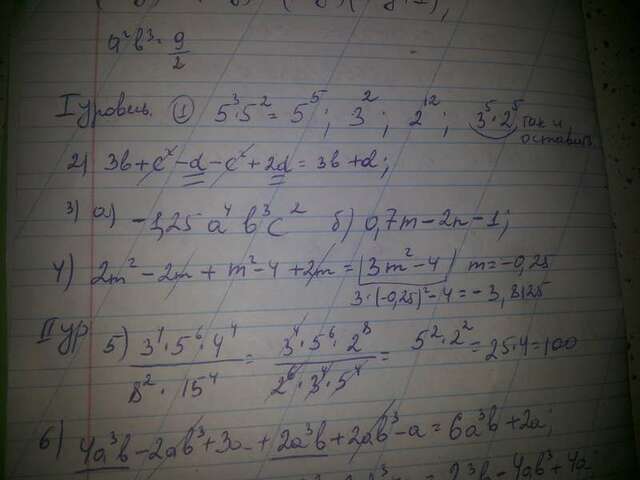 a²b³ · 9/2
I уровень ① 5³·5² = 5⁵; 3²; 2¹²; 3⁵·2⁵ так и оставить
2) 3b + c² - d - c² + 2d = 3b + d;
3) а) -1,25 a⁴b³c² б) 0,7m - 2n - 1;
4) 2m² - 2m + m² - 4 + 2m = 3m² - 4 m = -0,25
3·(-0,25)² - 4 = -3,8125
II ур 5) 3⁴·5⁶·4⁴ / 8²·15⁴ = 3⁴·5⁶·2⁸ / 2⁶·3⁴·5⁴ = 5²·2² = 25·4 = 100
6) 4a³b - 2ab³ + 3a + 2a³b + 2ab³ - a = 6a³b + 2a;